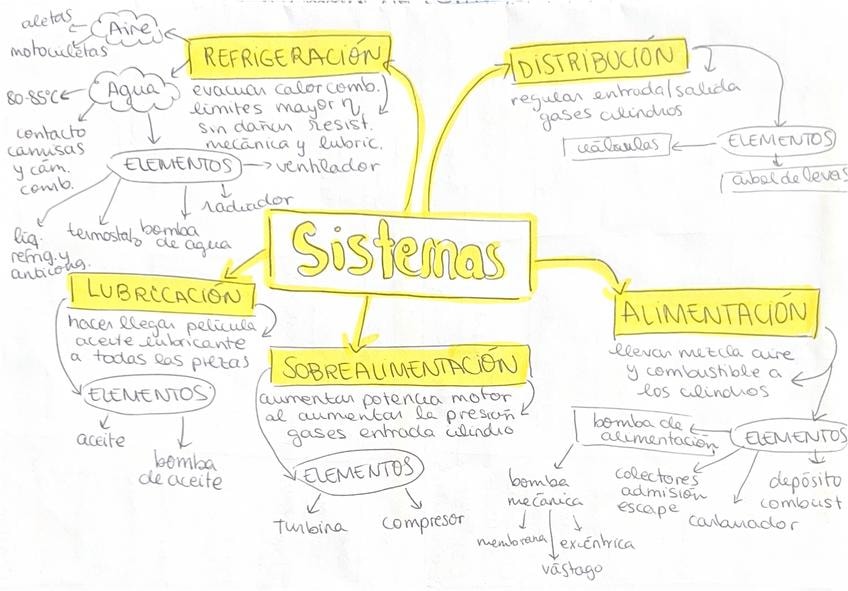 Sistemas
REFRIGERACIÓN
evacuar calor comb.
límites mayor η
sin dañar resist.
mecánica y lubric.
Aire
aletas
motocicletas
Agua
80-85ºC
contacto
camisas
y cám.
comb.
ELEMENTOS
ventilador
radiador
bomba
de agua
termostato
líq.
refrig. y
anticong.
DISTRIBUCIÓN
regular entrada/salida
gases cilindros
ELEMENTOS
válvulas
árbol de levas
LUBRICACIÓN
hacer llegar película
aceite lubricante
a todas las piezas
ELEMENTOS
aceite
bomba
de aceite
SOBREALIMENTACIÓN
aumentar potencia motor
al aumentar la presión
gases entrada cilindro
ELEMENTOS
turbina
compresor
ALIMENTACIÓN
llevar mezcla aire
y combustible a
los cilindros
ELEMENTOS
bomba de
alimentación
bomba
mecánica
membrana
vástago
excéntrica
colectores
admisión
escape
carburador
depósito
combust